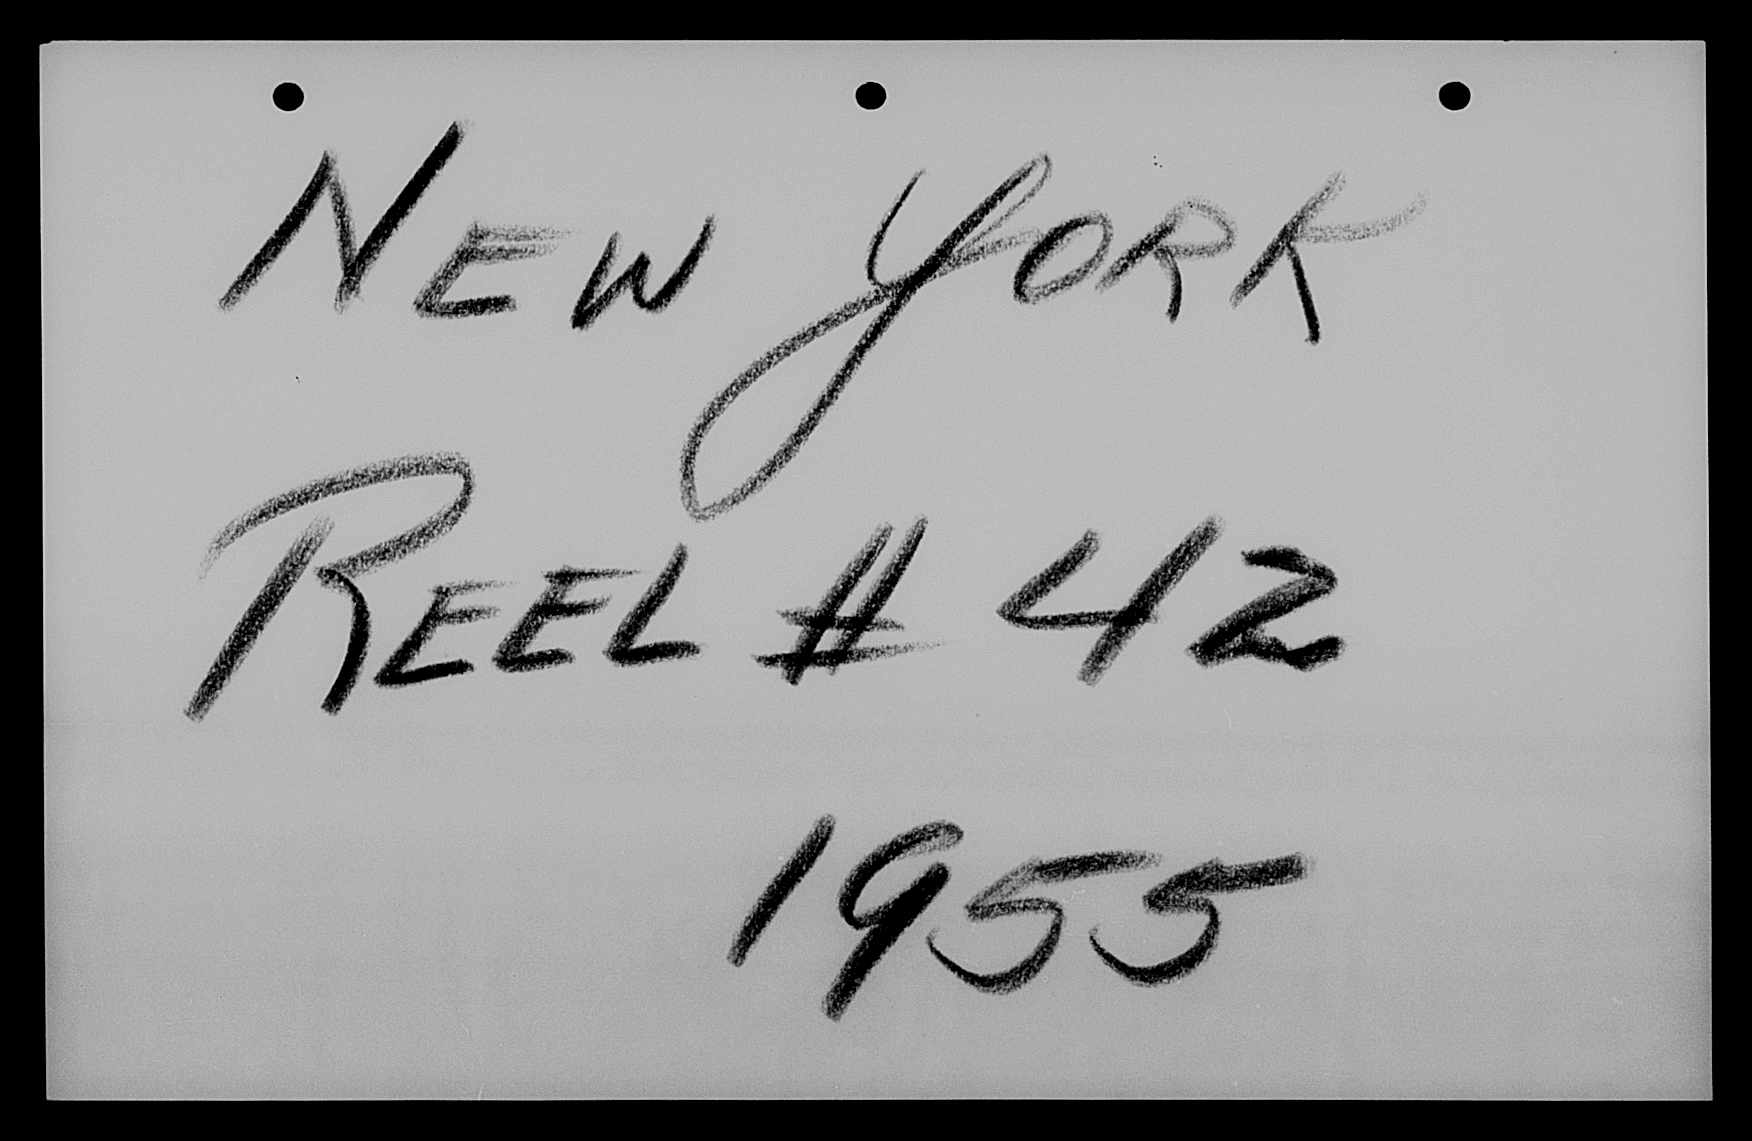 NEW YORK
REEL # 42
1955